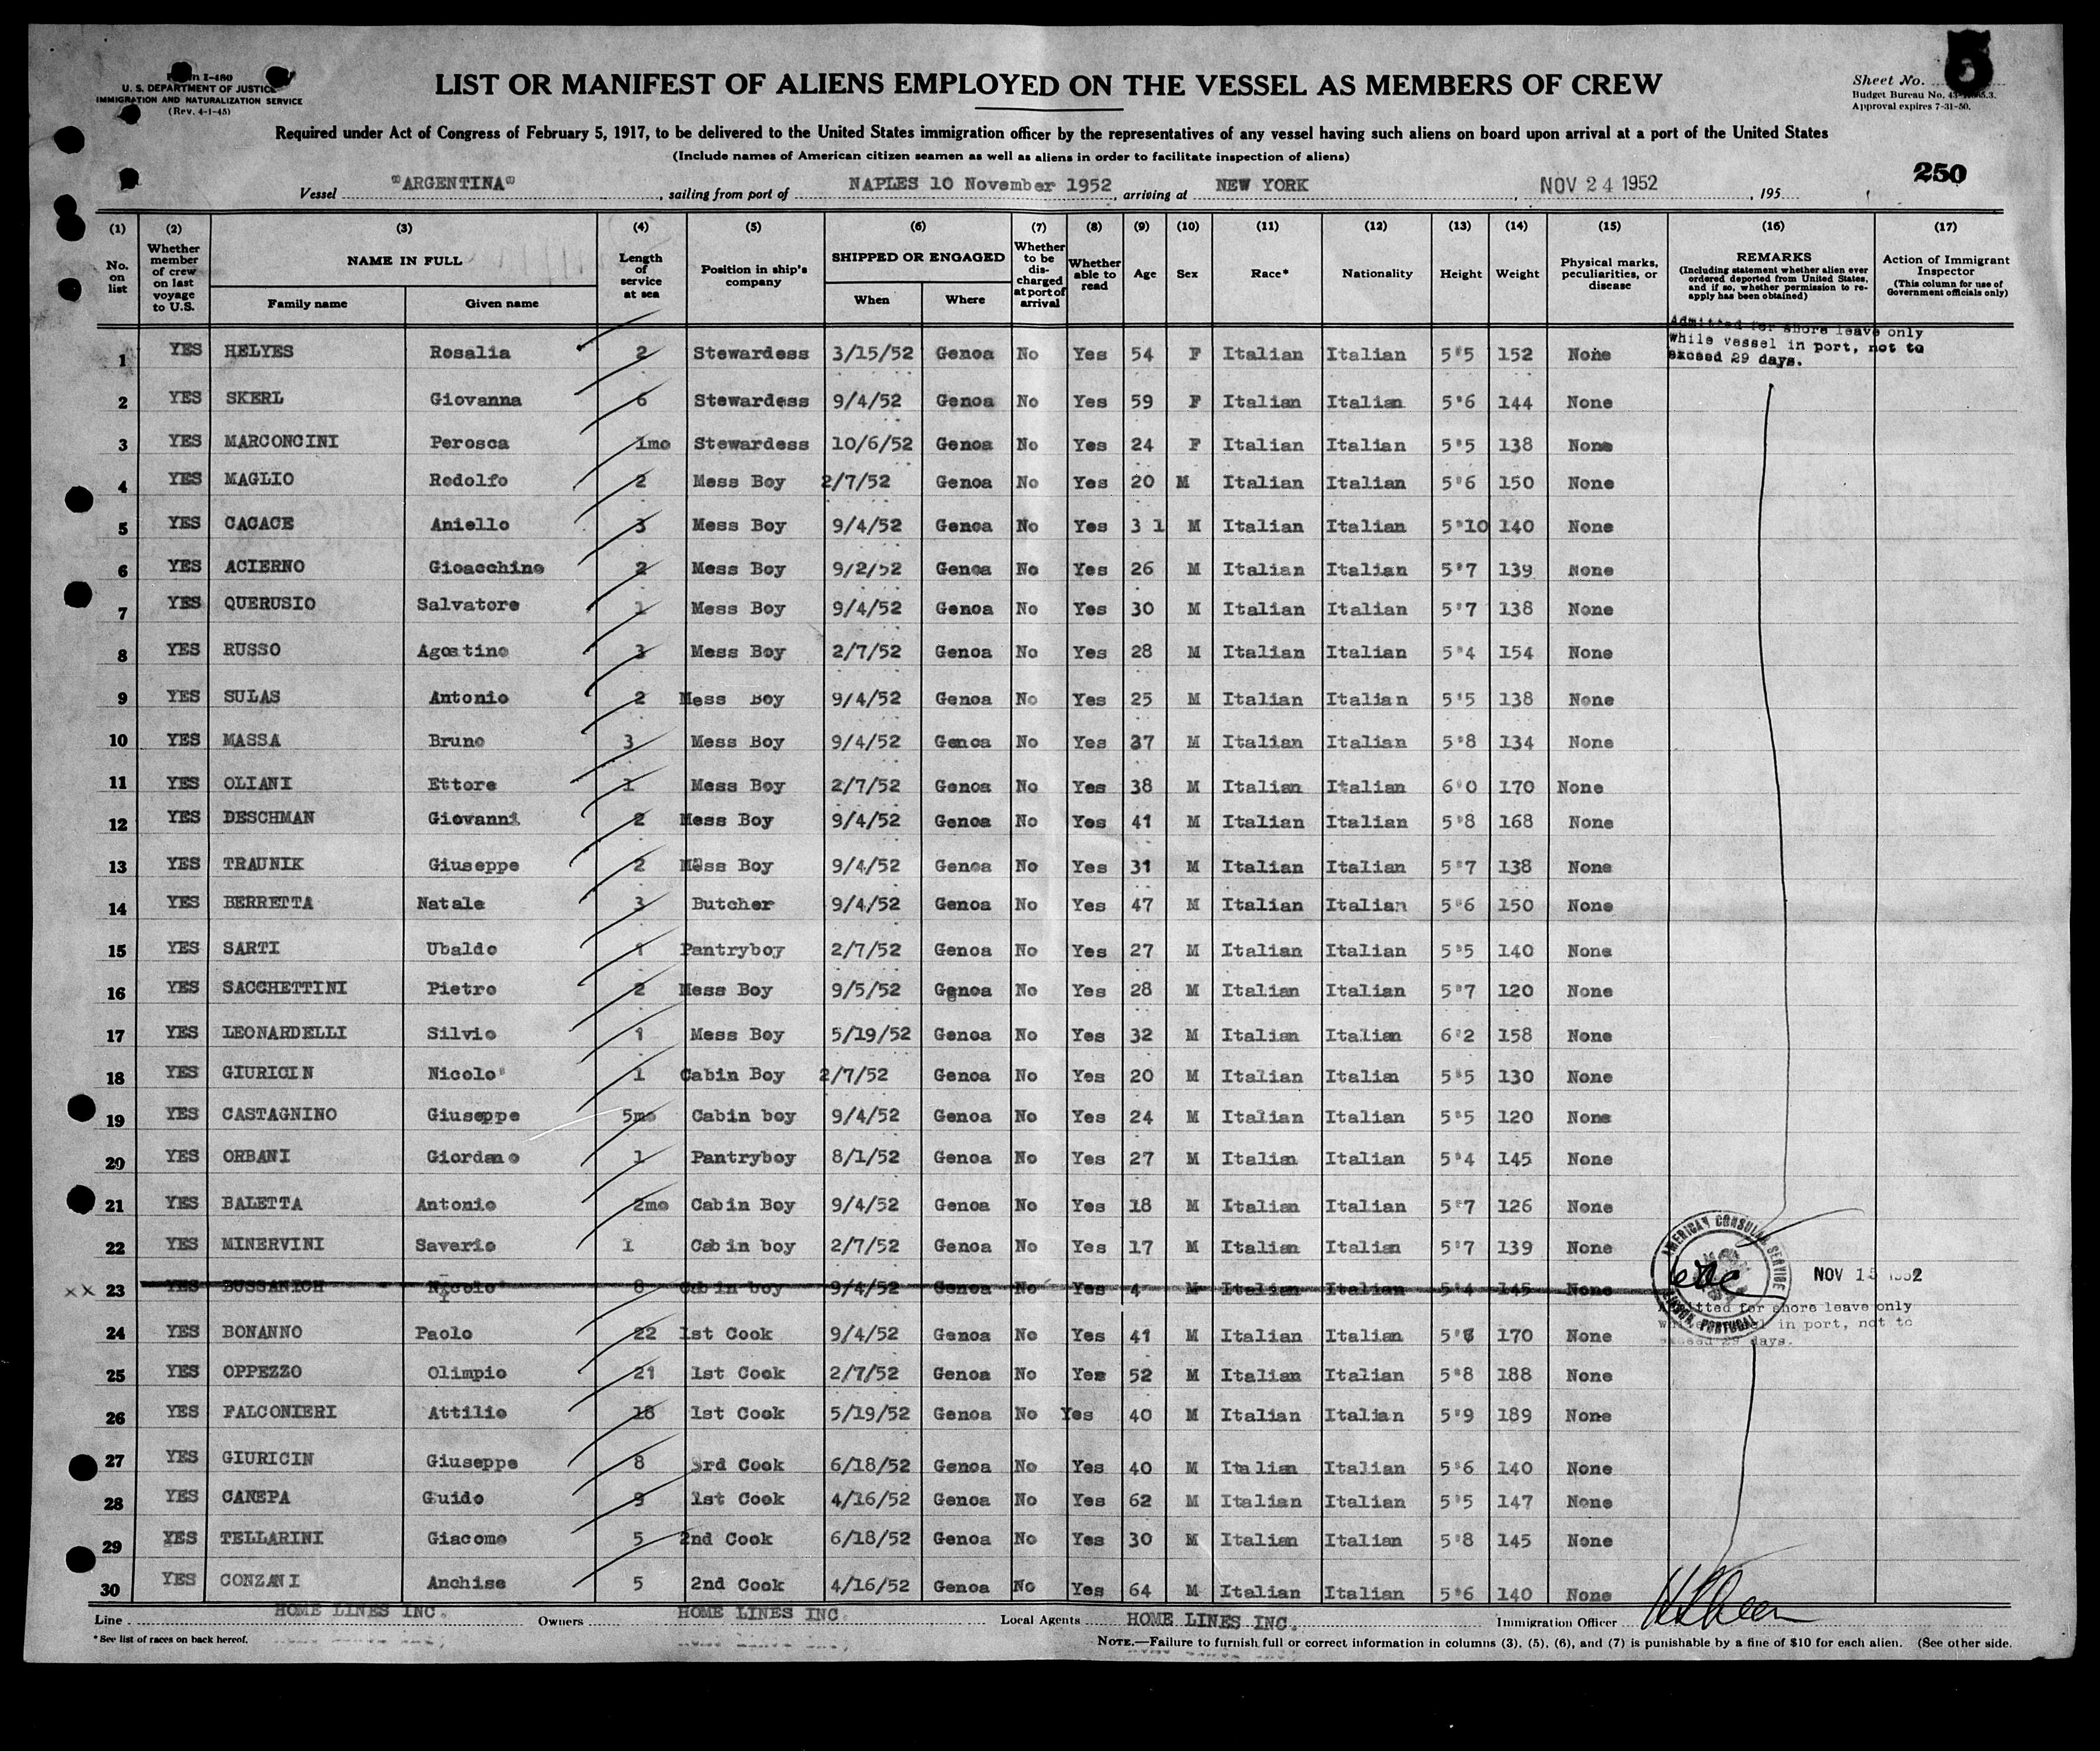 Form I-480
U. S. DEPARTMENT OF JUSTICE
IMMIGRATION AND NATURALIZATION SERVICE
(Rev. 4-1-45)
LIST OR MANIFEST OF ALIENS EMPLOYED ON THE VESSEL AS MEMBERS OF CREW
Sheet No. 5
Budget Bureau No. 43-
Approval expires 7-31-50.
Required under Act of Congress of February 5, 1917, to be delivered to the United States immigration officer by the representatives of any vessel having such aliens on board upon arrival at a port of the United States
(Include names of American citizen seamen as well as aliens in order to facilitate inspection of aliens)
250
Vessel "ARGENTINA", sailing from port of NAPLES 10 November 1952, arriving at NEW YORK, NOV 24 1952, 195
(1) No. on list
(2) Whether member of crew on last voyage to U.S.
(3) NAME IN FULL Family name Given name
(4) Length of service at sea
(5) Position in ship's company
(6) SHIPPED OR ENGAGED When Where
(7) Whether to be discharged at port of arrival
(8) Whether able to read
(9) Age
(10) Sex
(11) Race*
(12) Nationality
(13) Height
(14) Weight
(15) Physical marks, peculiarities, or disease
(16) REMARKS (Including statement whether alien ever ordered deported from United States, and if so, whether permission to reapply has been obtained)
(17) Action of Immigrant Inspector (This column for use of Government officials only)
Admitted for shore leave only
while vessel in port, not to
exceed 29 days.
1 YES HELYES Rosalia 2 Stewardess 3/15/52 Genoa No Yes 54 F Italian Italian 5'5 152 None
2 YES SKERL Giovanna 6 Stewardess 9/4/52 Genoa No Yes 59 F Italian Italian 5'6 144 None
3 YES MARCONCINI Perosca 1mo Stewardess 10/6/52 Genoa No Yes 24 F Italian Italian 5'5 138 None
4 YES MAGLIO Rodolfo 2 Mess Boy 2/7/52 Genoa No Yes 20 M Italian Italian 5'6 150 None
5 YES CACACE Aniello 3 Mess Boy 9/4/52 Genoa No Yes 3 1 M Italian Italian 5'10 140 None
6 YES ACIERNO Gioacchino 2 Mess Boy 9/2/52 Genoa No Yes 26 M Italian Italian 5'7 139 None
7 YES QUERUSIO Salvatore 1 Mess Boy 9/4/52 Genoa No Yes 30 M Italian Italian 5'7 138 None
8 YES RUSSO Agostino 3 Mess Boy 2/7/52 Genoa No Yes 28 M Italian Italian 5'4 154 None
9 YES SULAS Antonio 2 Mess Boy 9/4/52 Genoa No Yes 25 M Italian Italian 5'5 138 None
10 YES MASSA Bruno 3 Mess Boy 9/4/52 Genoa No Yes 37 M Italian Italian 5'8 134 None
11 YES OLIANI Ettore 1 Mess Boy 2/7/52 Genoa No Yes 38 M Italian Italian 6'0 170 None
12 YES DESCHMAN Giovanni 2 Mess Boy 9/4/52 Genoa No Yes 41 M Italian Italian 5'8 168 None
13 YES TRAUNIK Giuseppe 2 Mess Boy 9/4/52 Genoa No Yes 31 M Italian Italian 5'7 138 None
14 YES BERRETTA Natale 3 Butcher 9/4/52 Genoa No Yes 47 M Italian Italian 5'6 150 None
15 YES SARTI Ubaldo 1 Pantryboy 2/7/52 Genoa No Yes 27 M Italian Italian 5'5 140 None
16 YES SACCHETTINI Pietro 2 Mess Boy 9/5/52 Genoa No Yes 28 M Italian Italian 5'7 120 None
17 YES LEONARDELLI Silvio 1 Mess Boy 5/19/52 Genoa No Yes 32 M Italian Italian 6'2 158 None
18 YES GIURICIN Nicolo' 1 Cabin Boy 2/7/52 Genoa No Yes 20 M Italian Italian 5'5 130 None
19 YES CASTAGNINO Giuseppe 5mo Cabin boy 9/4/52 Genoa No Yes 24 M Italian Italian 5'5 120 None
20 YES ORBANI Giordano 1 Pantryboy 8/1/52 Genoa No Yes 27 M Italian Italian 5'4 145 None
21 YES BALETTA Antonio 2mo Cabin Boy 9/4/52 Genoa No Yes 18 M Italian Italian 5'7 126 None
22 YES MINERVINI Saverio 1 Cabin boy 2/7/52 Genoa No Yes 17 M Italian Italian 5'7 139 None
xx 23 YES BUSSANICH Nicolo' 8 Cabin boy 9/4/52 Genoa No Yes 4 M Italian Italian 5'4 145 None
AMERICAN CONSULAR SERVICE
PORTUGAL
NOV 15 1952
Admitted for shore leave only
while vessel in port, not to
exceed 29 days.
24 YES BONANNO Paolo 22 1st Cook 9/4/52 Genoa No Yes 41 M Italian Italian 5'8 170 None
25 YES OPPEZZO Olimpio 21 1st Cook 2/7/52 Genoa No Yes 52 M Italian Italian 5'8 188 None
26 YES FALCONIERI Attilio 18 1st Cook 5/19/52 Genoa No Yes 40 M Italian Italian 5'9 189 None
27 YES GIURICIN Giuseppe 8 3rd Cook 6/18/52 Genoa No Yes 40 M Italian Italian 5'6 140 None
28 YES CANEPA Guido 9 1st Cook 4/16/52 Genoa No Yes 62 M Italian Italian 5'5 147 None
29 YES TELLARINI Giacomo 5 2nd Cook 6/18/52 Genoa No Yes 30 M Italian Italian 5'8 145 None
30 YES CONZANI Anchise 5 2nd Cook 4/16/52 Genoa No Yes 64 M Italian Italian 5'6 140 None
Line HOME LINES INC. Owners HOME LINES INC. Local Agents HOME LINES INC. Immigration Officer
*See list of races on back hereof.
NOTE.—Failure to furnish full or correct information in columns (3), (5), (6), and (7) is punishable by a fine of $10 for each alien. (See other side.